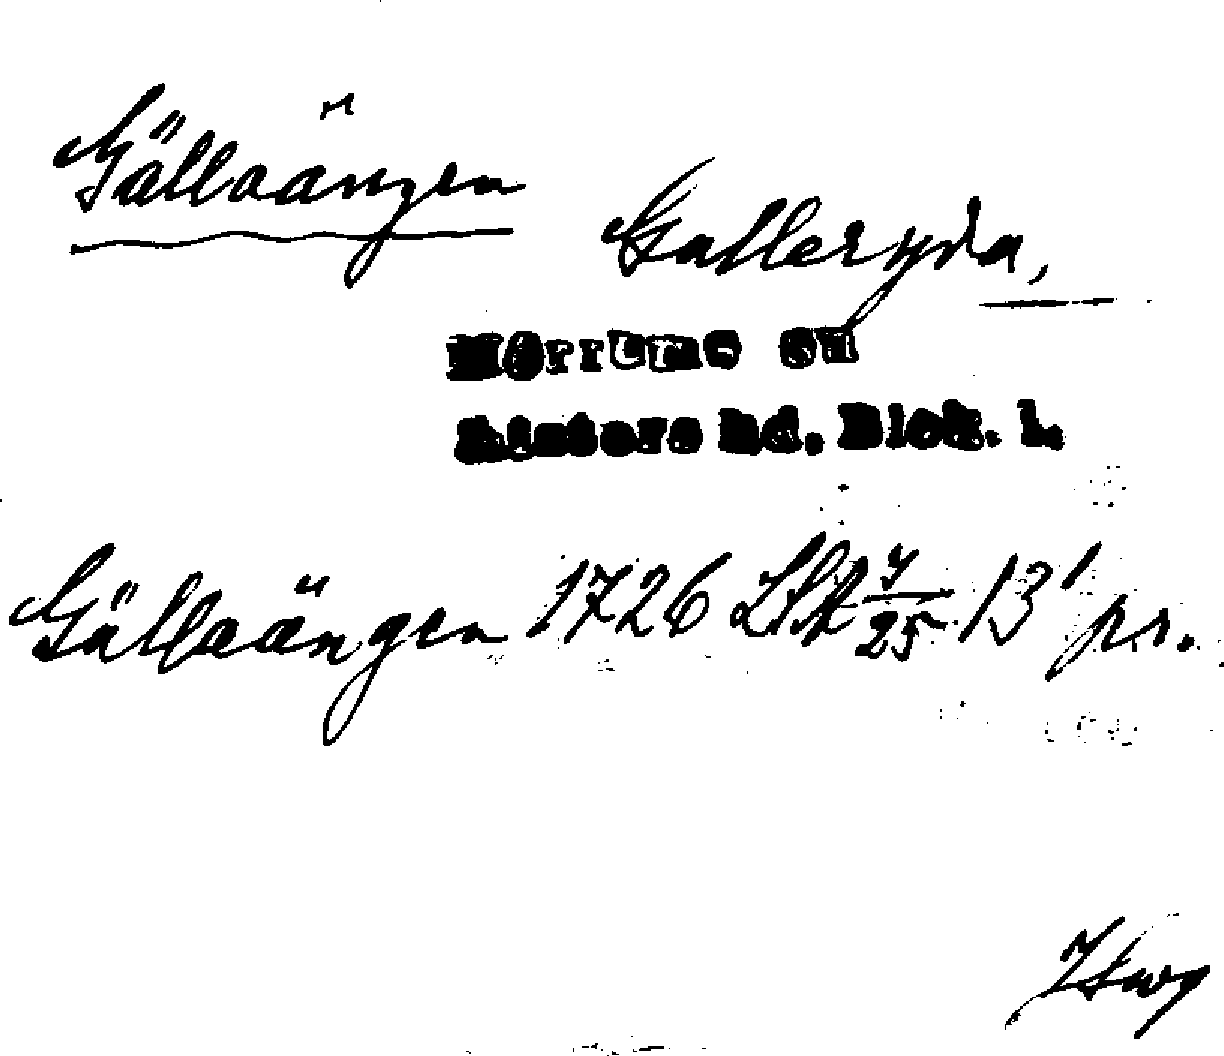 Gällaängen
Galleryda,
Mörrums sn
Listers hd. Blek. l.
Gällaängen 1726 LSA 7/25 13' pr.